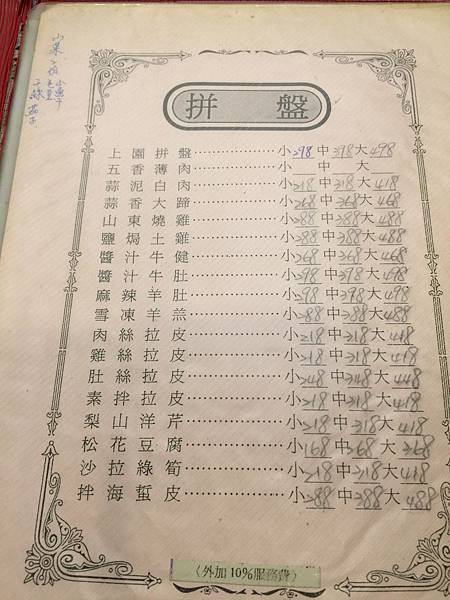 拼盤
上園拼盤………小298中398大498
五香薄肉………小 中 大
蒜泥白肉………小218中318大418
蒜香大蹄………小268中368大468
山東燒雞………小288中388大488
鹽焗土雞………小288中388大488
醬汁牛健………小268中368大468
醬汁牛肚………小298中398大498
麻辣羊肚………小298中398大498
雪凍羊羔………小288中388大488
肉絲拉皮………小218中318大418
雞絲拉皮………小218中318大418
肚絲拉皮………小248中348大448
素拌拉皮………小218中318大418
梨山洋芹………小218中318大418
松花豆腐………小168中268大368
沙拉綠筍………小218中318大418
拌海蜇皮………小288中388大488
(外加10%服務費)